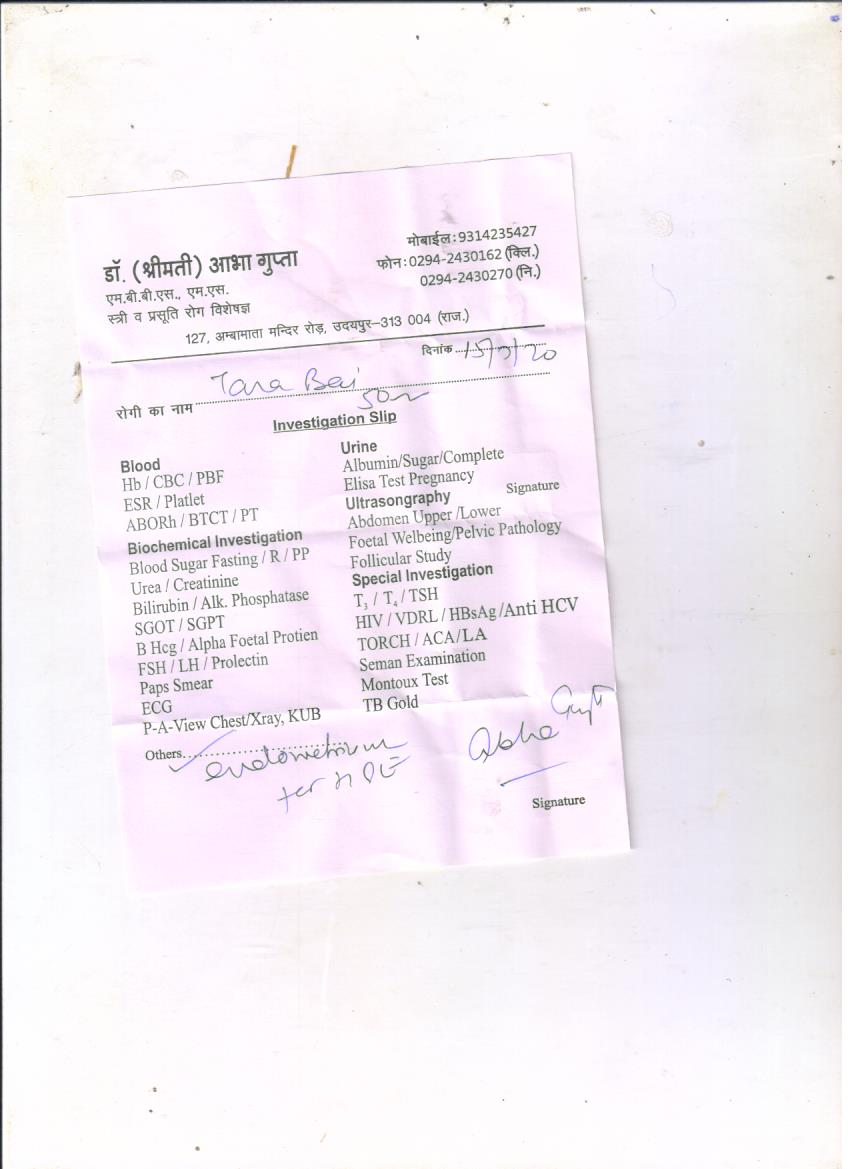 डॉ. (श्रीमती) आभा गुप्ता
एम.बी.बी.एस., एम.एस.
स्त्री व प्रसूति रोग विशेषज्ञ
मोबाईल:9314235427
फोन:0294-2430162 (क्लि.)
0294-2430270 (नि.)
127, अम्बामाता मन्दिर रोड़, उदयपुर–313 004 (राज.)
दिनांक
रोगी का नाम Tara Bai
Investigation Slip
Blood
Hb / CBC / PBF
ESR / Platlet
ABORh / BTCT / PT
Biochemical Investigation
Blood Sugar Fasting / R / PP
Urea / Creatinine
Bilirubin / Alk. Phosphatase
SGOT / SGPT
B Hcg / Alpha Foetal Protien
FSH / LH / Prolectin
Paps Smear
ECG
P-A-View Chest/Xray, KUB
Urine
Albumin/Sugar/Complete
Elisa Test Pregnancy
Signature
Ultrasongraphy
Abdomen Upper /Lower
Foetal Welbeing/Pelvic Pathology
Follicular Study
Special Investigation
T₃ / T₄ / TSH
HIV / VDRL / HBsAg /Anti HCV
TORCH / ACA/LA
Seman Examination
Montoux Test
TB Gold
Others endometrium
for HPE
Abha Gupta
Signature